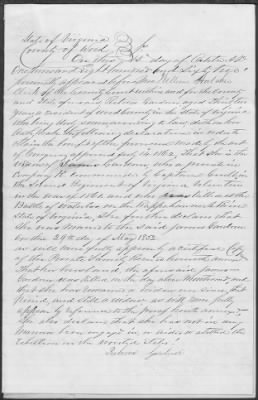 State of Virginia
County of Wood
On this day of October AD
One thousand Eight hundred and Sixty
personally appeared before me William
Clerk of the County Court within and for the County
and State aforesaid Rebecca Gardner aged Thirty
years a resident of in the State of Virginia
who being duly sworn according to law doth on her
oath make the following declaration in order to
obtain the benefits of the provision made by the act
of Congress approved July 14 1862. That she is the
widow of James Gardner who a private in
Company K commanded by Captain
the Second Regiment of Virginia
in the war of 1861 and who was killed at the
Battle of Waterloo on the Rappahannock River
State of Virginia, She further declares that
she was married to the said James Gardner
on the 29th day of May 1852
as will more fully appear by a certified Copy
of the hereunto annexed
that her husband, the aforesaid James
Gardner was killed on the day above Mentioned and
that she has remained a widow ever since that
period, and still a widow as will more fully
appear by reference to the proof hereto annexed.
She also declares that she has not in any
manner been engaged in or aided or abetted the
rebellion in the United States.